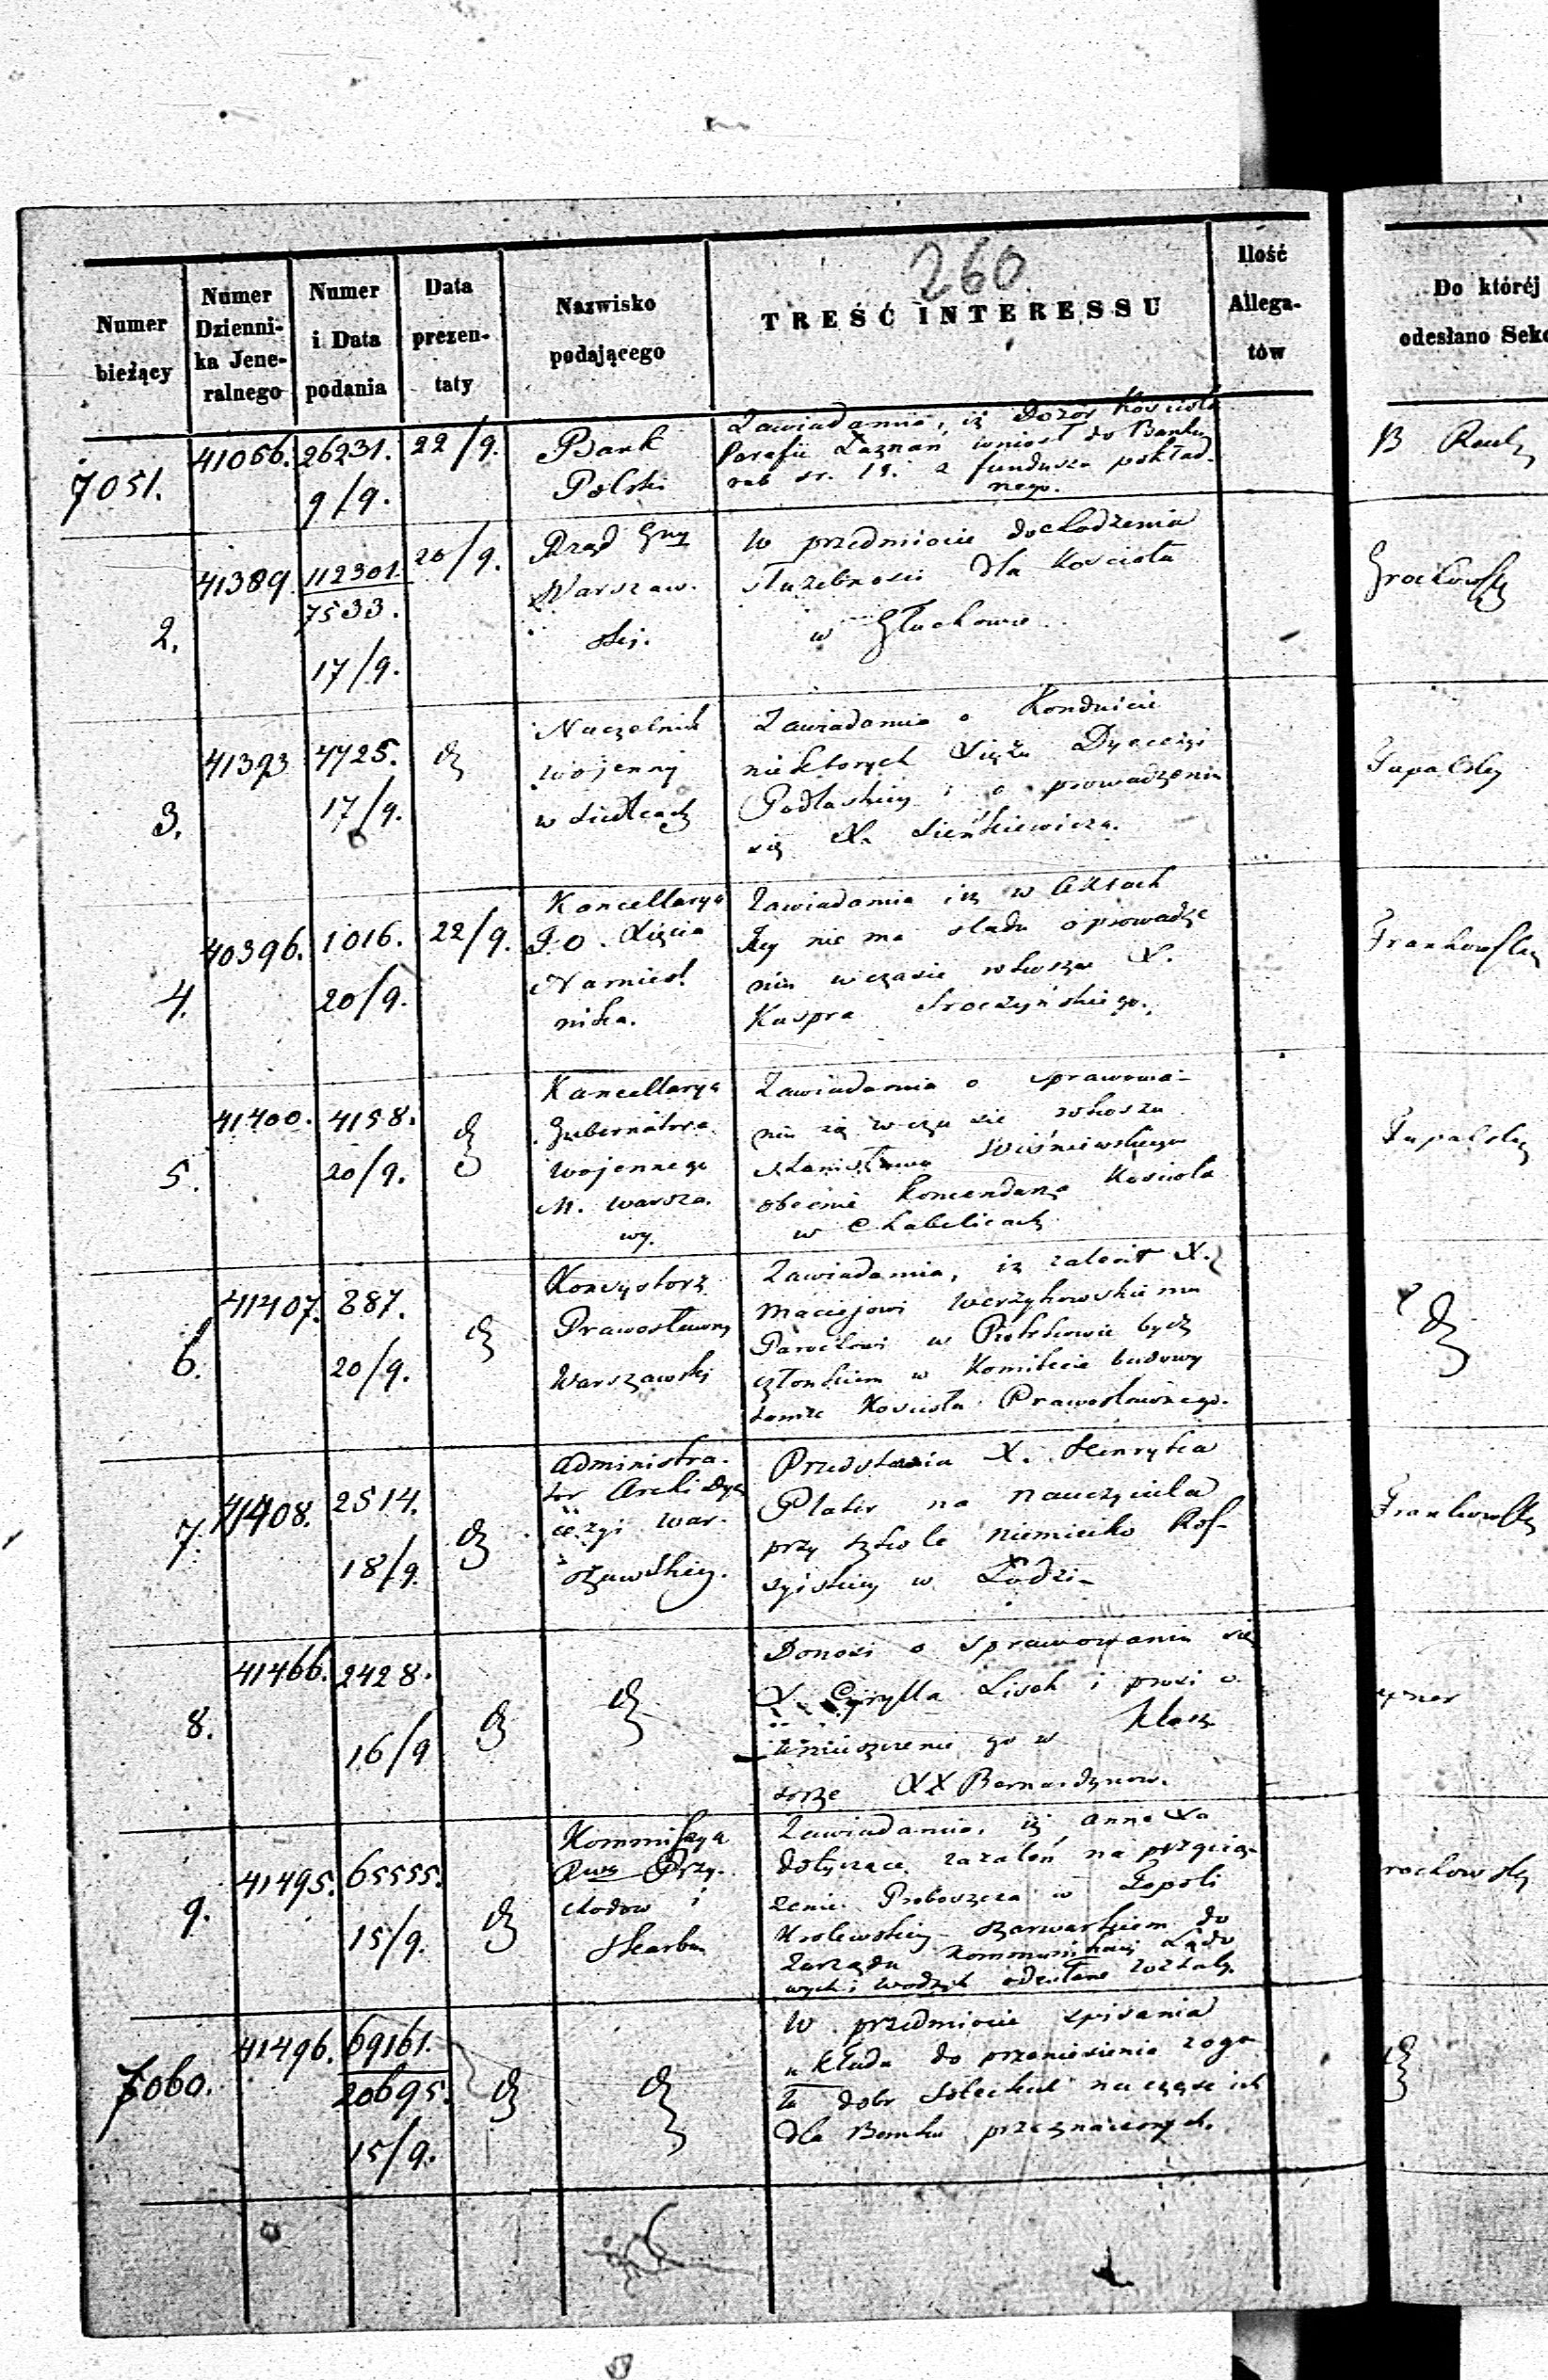 260.
Numer bieżący
Numer Dzienni-ka Jene-ralnego
Numer i Data podania
Data prezen-taty
Nazwisko podającego
TREŚĆ INTERESSU
Ilość Allega-tów
Do któréj
odesłano Sek
7051.
41066.
26231.
9/9.
22/9.
Bank
Polski
Zawiadamia, iż Dozór Kościoła
Parafii Łaznan wniosł do Banku
rub sr. 18. z funduszu pokład-
nego.
B
2.
41389
112301.
7533.
17/9.
20/9.
Rząd
Warszaw.
skij.
W przedmiocie dochodzenia
służebnosci dla Kościoła
w Głuchowie
Grochowski
3.
41393
4725.
17/9.
Naczelnik
Wojenny
w Siedlcach
Zawiadamia o Konduicie
niektorych Xięży Dyecezyi
Podlaskiej i o prowadzeniu
się X. Sieńkiewicza.
Tupalski
4.
40396.
1016.
20/9.
22/9.
Kancellarya
J. O. Xięcia
Namiest
nika.
Zawiadamia iż w aktach
Jey nie ma sladu o prowadze
niu w czasie rokoszu X.
Kaspra Sroczyńskiego.
Frankowski
5.
41400.
4158.
20/9.
Kancellarya
Gubernatora
Wojennego
M. Warsza.
wy.
Zawiadamia o sprawowa-
niu się w czasie rokoszu
Stanisława Wiśniewskiego
obecnie Komendarza Kościoła
w Chabelicach
Tupalski
6.
41407.
887.
20/9.
Konsystorz
Prawosławny
Warszawski
Zawiadamia, iż zalecił X.
Maciejowi Werzykowskiemu
w Piotrkowie bydź
członkiem w Komitecie budowy
tamże Kościoła Prawosławnego.
7.
41408.
2514.
18/9.
Administra-
tor Archidye
cezyi War-
szawskiej.
Przedstawia X. Henryka
Plater na Nauczyciela
przy szkole Niemiecko Ros-
syiskiej w Łodzi-
Frankowski
8.
41466.
2428.
16/9
Donosi o sprawowaniu się
X. Cyrylla Lisek i prosi o
umieszczenie go w Klasz
torze XX Bernardynow.
9.
41495.
65555.
15/9.
Kommissya
Rwa Przy-
chodow i
Skarbu
Zawiadamia, iż annexa
dotyczące zażaleń na przecią-
żenie Proboszcza w Topoli
Krolewskiej szarwarkiem do
Zarządu Kommunikacij Lądo
wych i Wodnych odesłane zostały.
rochowski
7060.
41496.
69161.
20695.
15/9.
W przedmiocie spisania
układu do przeniesienia z ogo
łu dobr Solechul na część ich
dla Banku przeznaczonych.